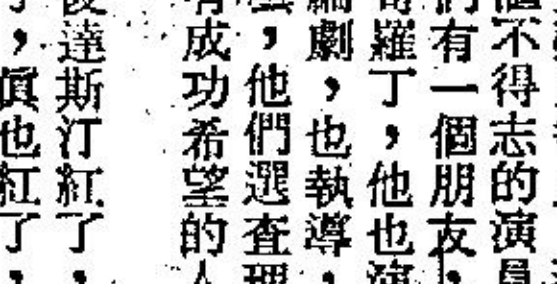 個不得志的演員
們有一個朋友，
羅丁，他也演
編劇，也執導，
，他們選查理
有成功希望的人
後達斯汀紅了，
，眞也紅了，